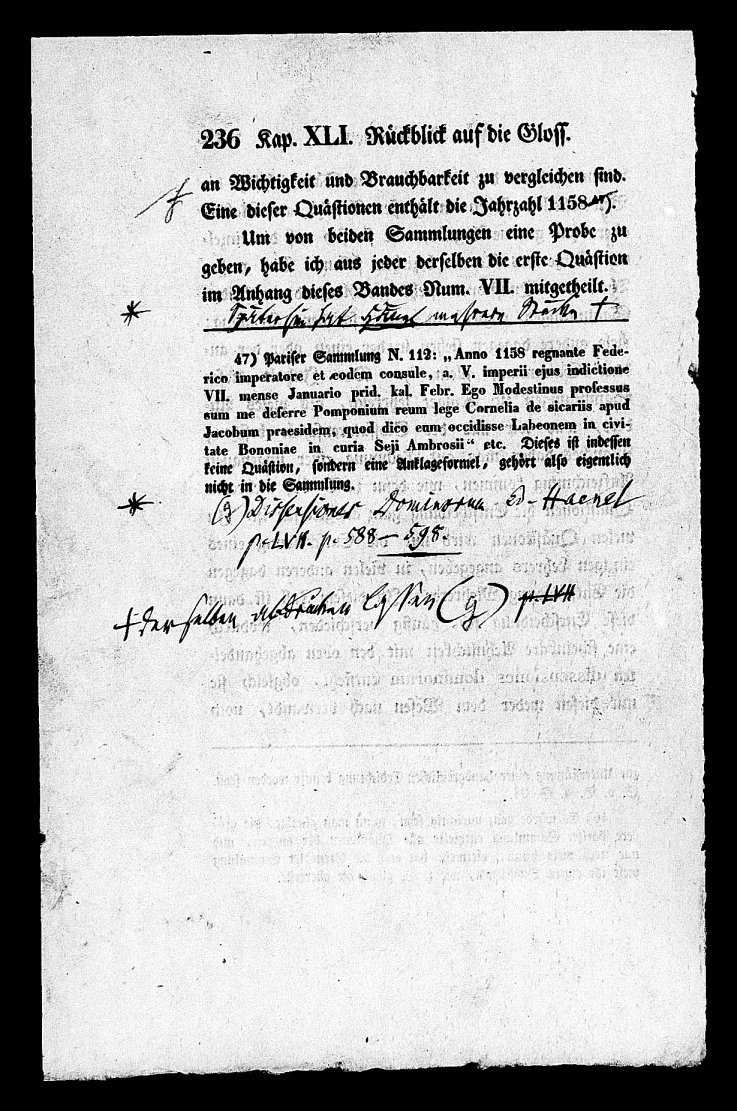 236 Kap. XLI. Rückblick auf die Gloss.
an Wichtigkeit und Brauchbarkeit zu vergleichen sind.
Eine dieser Quästionen enthält die Jahrzahl 1158 47).
Um von beiden Sammlungen eine Probe zu
geben, habe ich aus jeder derselben die erste Quästion
im Anhang dieses Bandes Num. VII. mitgetheilt.
* Späterhin hat Hänel mehrere Stücke +
47) Pariser Sammlung N. 112: „Anno 1158 regnante Fede-
rico imperatore et eodem consule, a. V. imperii ejus indictione
VII. mense Januario prid. kal. Febr. Ego Modestinus professus
sum me deferre Pomponium reum lege Cornelia de sicariis apud
Jacobum praesidem, quod dico eum occidisse Labeonem in civi-
tate Bononiae in curia Seji Ambrosii“ etc. Dieses ist indessen
keine Quästion, sondern eine Anklageformel, gehört also eigentlich
nicht in die Sammlung.
* Dissensiones Dominorum ed. Haenel
p. LVII. p. 588–598.
+ derselben abdrucken lassen p. LVII